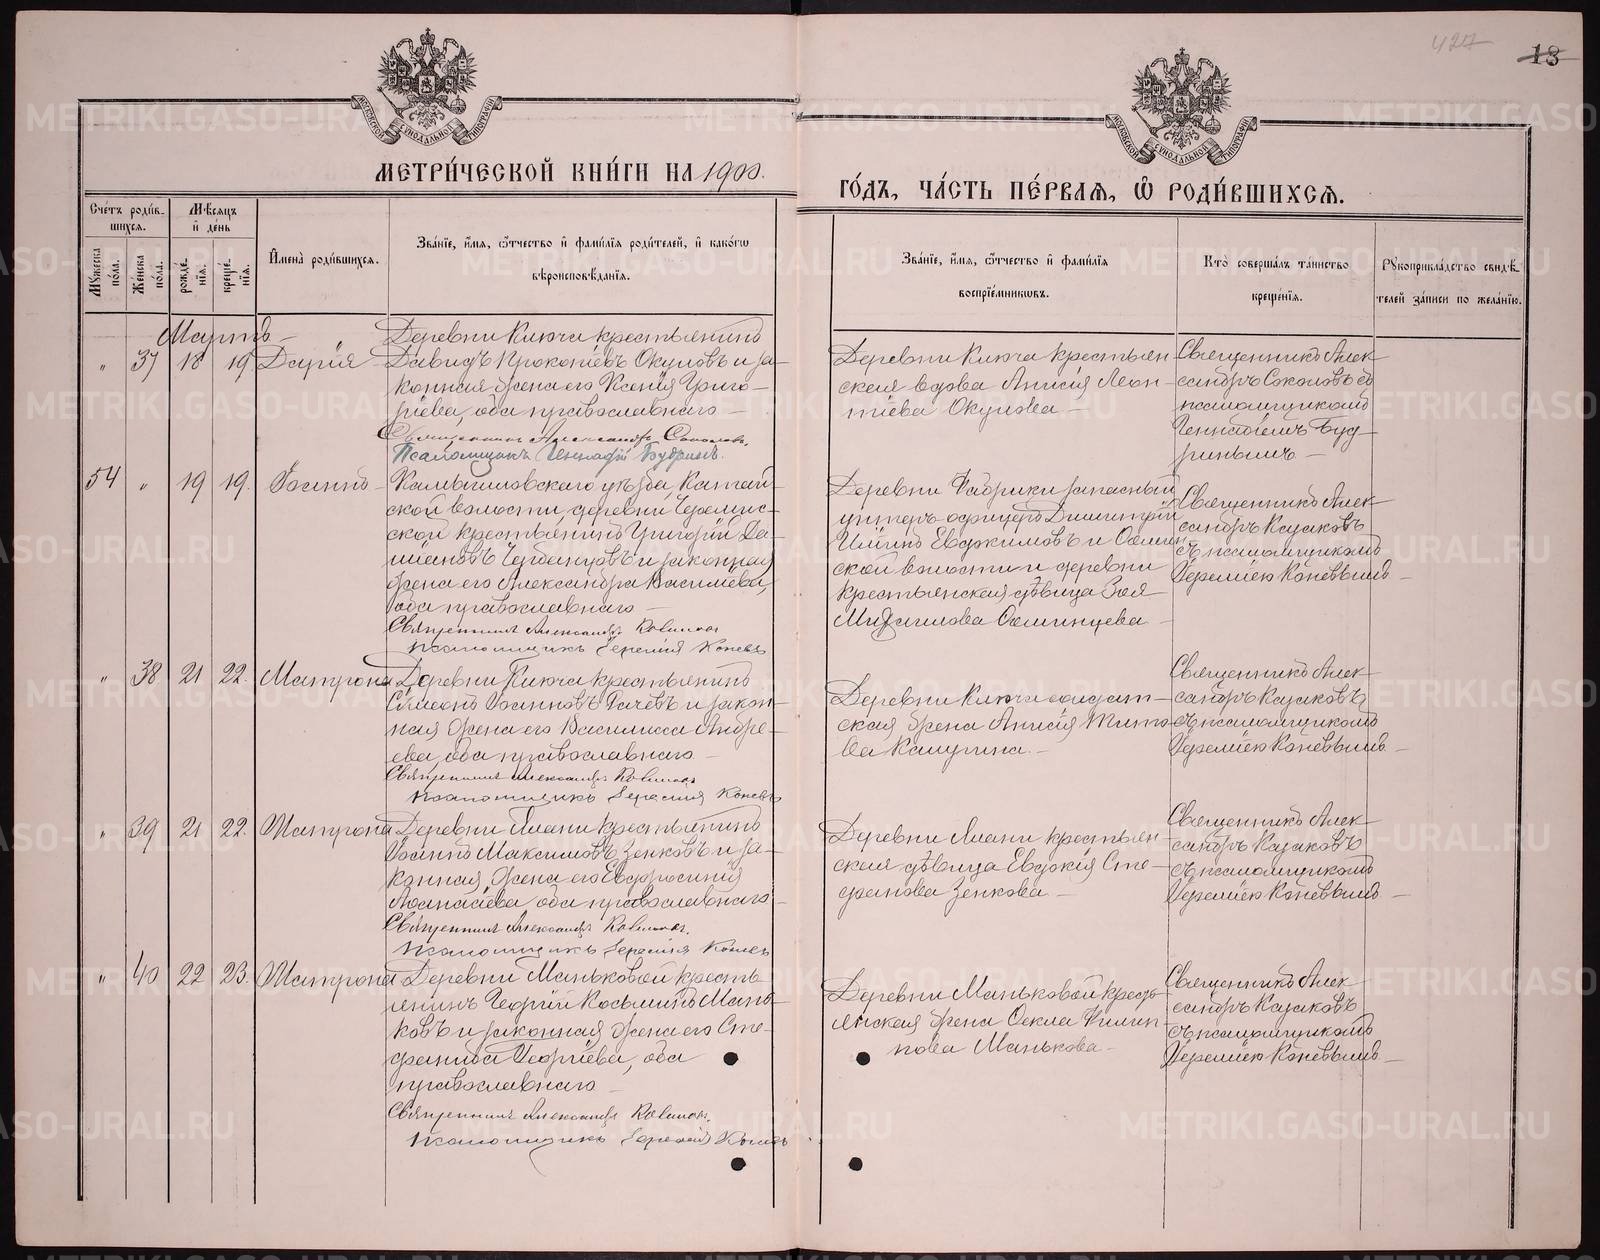 427
13
МОСКОВСКОЙ СУНОДАЛЬНОЙ ТИПОГРАФІИ
МОСКОВСКОЙ СУНОДАЛЬНОЙ ТИПОГРАФІИ
МЕТРИ́ЧЕСКОЙ КНИ́ГИ НА 1900.
ГО́ДЪ, ЧА́СТЬ ПЕ́РВАѦ, Ѿ РОДИ́ВШИХСѦ.
Сче́тъ роди́в-
шихсѧ.
Мꙋ́жеска по́ла.
Же́нска по́ла.
Мѣ́сѧцъ и҆ де́нь
рожде́-нїѧ.
креще́-нїѧ.
И҆мена̀ роди́вшихсѧ.
Зва́нїе, и҆́мѧ, ѻ҆́тчество и҆ фами́лїѧ роди́телей, и҆ како́гѡ
вѣроисповѣ́данїѧ.
Зва́нїе, и҆́мѧ, ѻ҆́тчество и҆ фами́лїѧ
воспрїе́мникѡвъ.
Кто̀ соверша́лъ та́инство
креще́нїѧ.
Рꙋкоприкла́дство свидѣ́-
телей за́писи по жела́нїю.
Мартъ
" 37 18 19 Дарія
Деревни Ключа крестьянинъ
Давидъ Прокопіевъ Окуловъ и за-
конная жена его Ксенія Григо-
ріева, оба православнаго
Священникъ Александръ Соколовъ.
Псаломщикъ Геннадій Будринъ.
Деревни Ключа крестьян-
ская вдова Анисія Леон-
тіева Окулова
Священникъ Алек-
сандръ Соколовъ съ
псаломщикомъ
Геннадіемъ Буд-
ринымъ
54 " 19 19. Іоаннъ
Камышловскаго уѣзда, Катай-
ской волости, деревни Черемис-
ской крестьянинъ Григорій Да-
міановъ и законная
жена его Александра Василіева,
оба православнаго
Священникъ Александръ
Псаломщикъ Іеремія Коневъ
Деревни Фабрики запасный
унтеръ-офицеръ Димитрій
Евдокимовъ и
ской волости и деревни
крестьянская дѣвица Зоя
Михаилова
Священникъ Алек-
сандръ Казаковъ
съ псаломщикомъ
Іереміею Коневымъ
" 38 21 22. Матрона
Деревни Ключа крестьянинъ
Симеонъ Іоанновъ и закон-
ная жена его Василисса Андре-
ева, оба православнаго
Священникъ Александръ
Псаломщикъ Іеремія Коневъ
Деревни Ключа солдат-
ская жена Анисія Тито-
ва Калугина.
Священникъ Алек-
сандръ Казаковъ
съ псаломщикомъ
Іереміею Коневымъ
" 39 21 22. Матрона
Деревни крестьянинъ
Іоаннъ Максимовъ Зенковъ и за-
конная жена его Евфросинія
Аѳанасіева, оба православнаго
Священникъ Александръ
Псаломщикъ Іеремія Коневъ
Деревни крестьян-
ская дѣвица Евдокія Сте-
фанова Зенкова
Священникъ Алек-
сандръ Казаковъ
съ псаломщикомъ
Іереміею Коневымъ
" 40 22 23. Матрона
Деревни Маньковой кресть-
янинъ Георгій Косьминъ Мань-
ковъ и законная жена его Сте-
фанида Георгіева, оба
православнаго
Священникъ Александръ
Псаломщикъ Іеремія Коневъ
Деревни Маньковой кресть-
янская жена Ѳекла Филип-
пова Манькова
Священникъ Алек-
сандръ Казаковъ
съ псаломщикомъ
Іереміею Коневымъ
METRIKI.GASO-URAL.RU